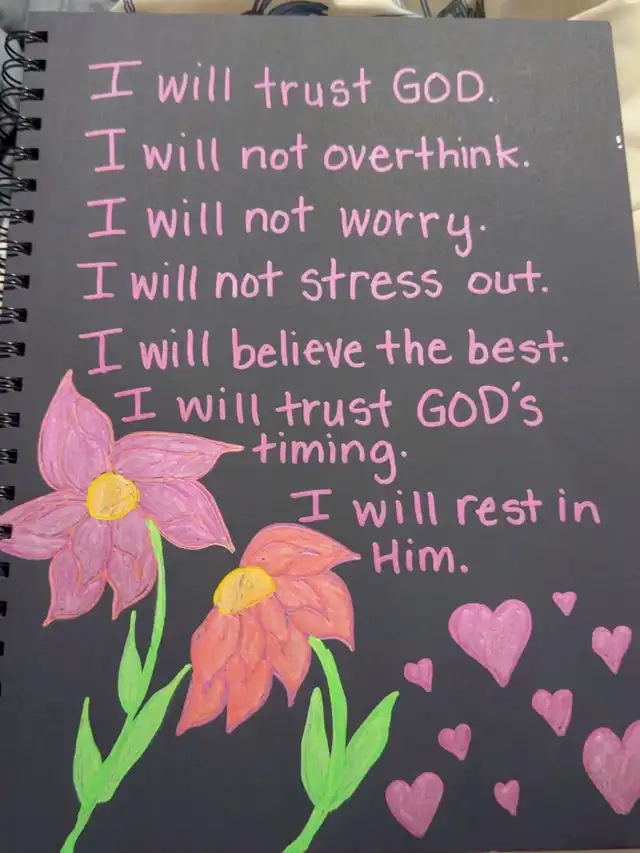 I will trust GOD.
I will not overthink.
I will not worry.
I will not stress out.
I will believe the best.
I will trust GOD's
timing.
I will rest in
Him.